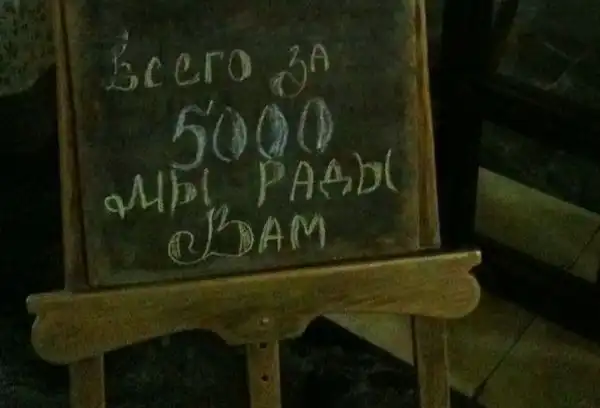 Всего за
5000
мы рады
Вам